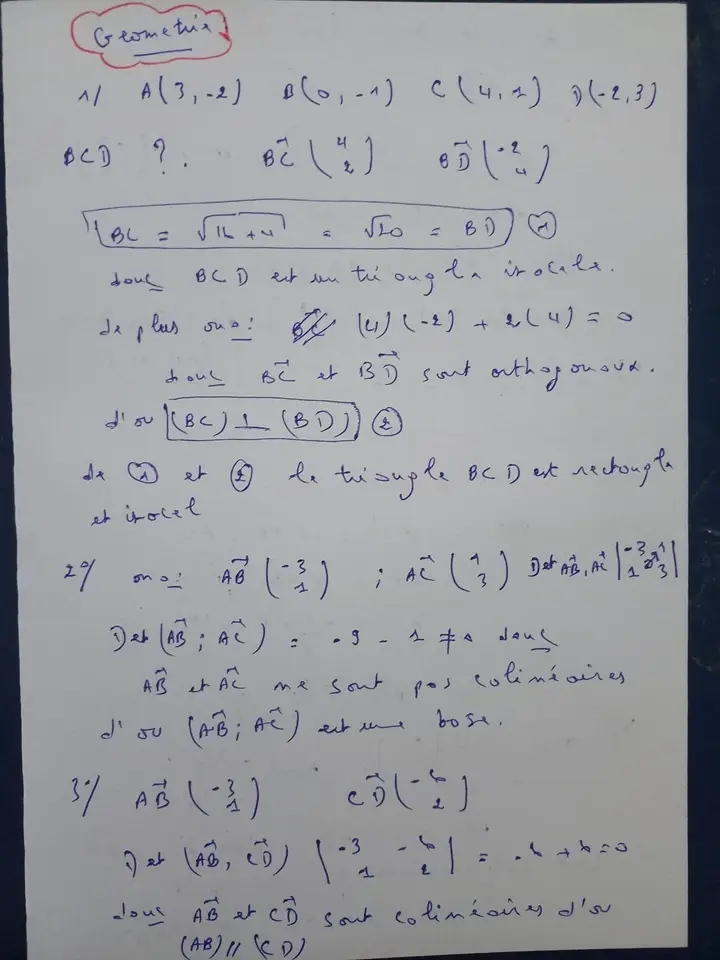 Geometrie
1/ A(3,-2) B(0,-1) C(4,1) D(-2,3)
BCD ? . BC→ (4 2) BD→ (-2 4)
BC = √16+4 = √20 = BD ①
donc BCD est un triangle isocele.
de plus on a: (4)(-2) + 2(4) = 0
donc BC→ et BD→ sont orthogonaux.
d'où (BC) ⊥ (BD) ②
de ① et ② le triangle BCD est rectangle
et isocel
2°/ on a: AB→ (-3 1) ; AC→ (1 3) Det AB→, AC→ |-3 1 1 3|
Det (AB→ ; AC→) = -9 - 1 ≠ 0 donc
AB→ et AC→ ne sont pas colinéaires
d'où (AB→ ; AC→) est une base.
3°/ AB→ (-3 1) CD→ (-6 2)
Det (AB→, CD→) |-3 -6 1 2| = -6 + 6 = 0
donc AB→ et CD→ sont colinéaires d'où
(AB) // (CD)